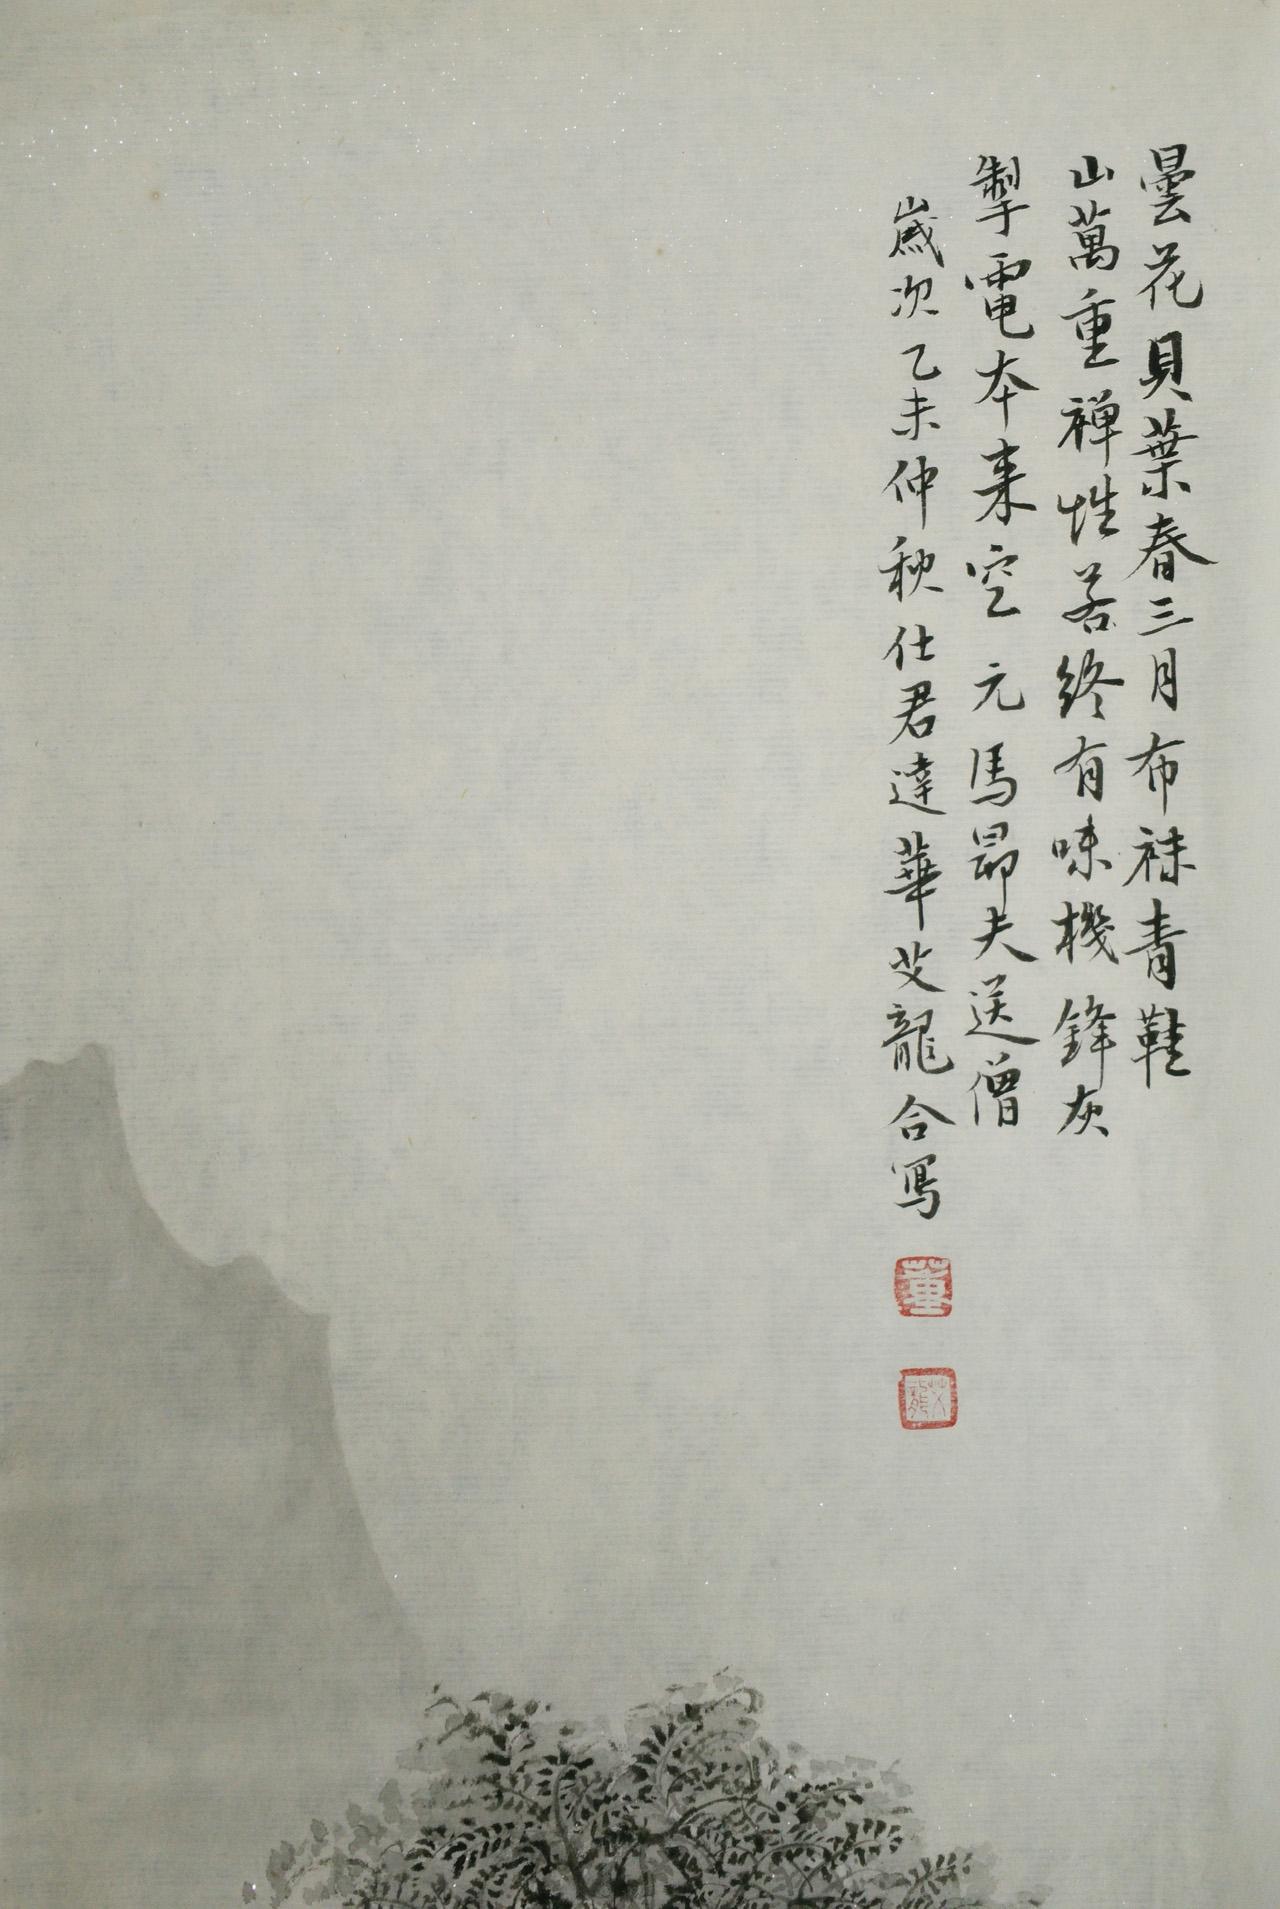 曇花貝葉春三月布襪青鞋
山萬重禪性若終有味機鋒灰
掣電本来空 元馬昂夫送僧
歲次乙未仲秋仕君達華艾龍合寫
董
艾龍